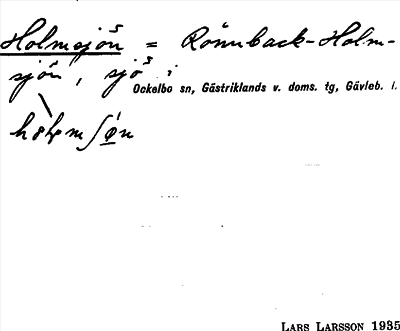 Holmsjön = Rönnback-Holm-
sjön, sjö i
Ockelbo sn, Gästriklands v. doms. tg, Gävleb. l.
LARS LARSSON 1935